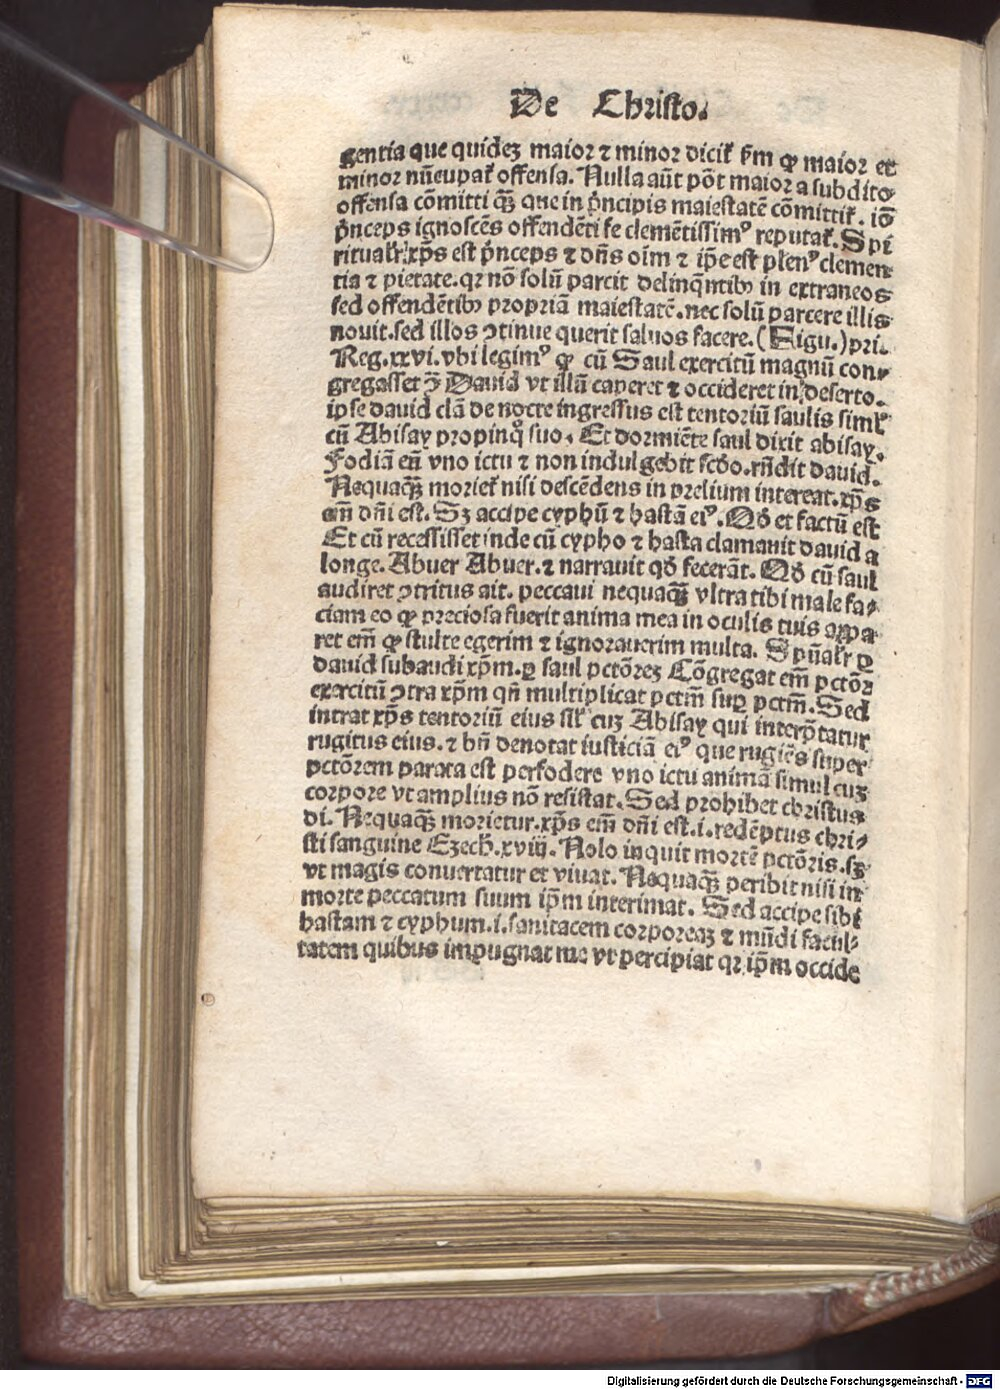 De Christo.
gentia que quidez maior ⁊ minor dicit᷑ ẜm ꝙ maior et
minor nũcupat᷑ offensa. Nulla aũt pōt maior a subdito
offensa cōmitti qꝫ que in p̃ncipis maiestatē cōmittit᷑. iō
p̃nceps ignoscēs offendēti se clemētissimꝰ reputat᷑. Spi
ritualr̃ xp̄s est p̃nceps ⁊ dn̄s oīm ⁊ ip̄e est plenꝰ clemen
tia ⁊ pietate. qꝛ nō solũ parcit delinq̄ntibꝰ in extraneos
sed offendētibꝰ propriā maiestatē. nec solũ parcere illis
nouit. sed illos ꝯtinue querit saluos facere. (Figu.) pri.
Reg. xxvi. vbi legimꝰ ꝙ cũ Saul exercitũ magnũ con⸗
gregasset ꝯ̃ Dauid vt illũ caperet ⁊ occideret in deserto.
ipse dauid clā de nocte ingressus est tentoriũ saulis siml̕
cũ Abisay propinq̊ suo. Et dormiēte saul dixit abisay.
Fodiā eũ vno ictu ⁊ non indulgebit scd̄o. rñdit dauid.
Nequaq̄ꝫ moriet᷑ nisi descēdens in prelium intereat. xp̄s
em̄ dn̄i est. Sꝫ accipe cyphũ ⁊ hastā eiꝰ. Qd̕ et factũ est
Et cũ recessisset inde cũ cypho ⁊ hasta clamauit dauid a
longe. Abuer Abuer. ⁊ narrauit qd̕ fecerāt. Qd̕ cũ saul
audiret ꝯtritus ait. peccaui nequaq̄ꝫ vltra tibi male fa⸗
ciam eo ꝙ preciosa fuerit anima mea in oculis tuis appa
ret em̄ ꝙ stulte egerim ⁊ ignorauerim multa. Spũalr̃ ꝑ
dauid subaudi xp̄m. ꝑ saul pctōrez Cōgregat em̄ pctōr
exercitũ ꝯtra xp̄m qñ multiplicat pctm̄ suꝑ pctm̄. Sed
intrat xp̄s tentoriũ eius sil̕ cuz Abisay qui interp̄tatur
rugitus eius. ⁊ bñ denotat iusticiā eiꝰ que rugiēs super
pctōrem parata est perfodere vno ictu animā simul cuz
corpore vt amplius nō resistat. Sed prohibet christus
di. Nequaq̄ꝫ morietur. xp̄s em̄ dn̄i est. i. redēptus chri⸗
sti sanguine Ezech. xviij. Nolo inquit mortē pctōris. sꝫ
vt magis conuertatur et viuat. Nequaq̄ꝫ peribit nisi in
morte peccatum suum ip̄m interimat. Sed accipe sibi
hastam ⁊ cyphum. i. sanitatem corporeaꝫ ⁊ mũdi facul⸗
tatem quibus impugnat me vt percipiat qꝛ ip̄m occide
Digitalisierung gefördert durch die Deutsche Forschungsgemeinschaft - DFG